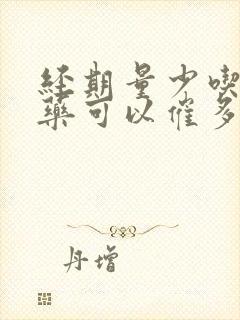 經期量少喫
藥可以催多
丹增